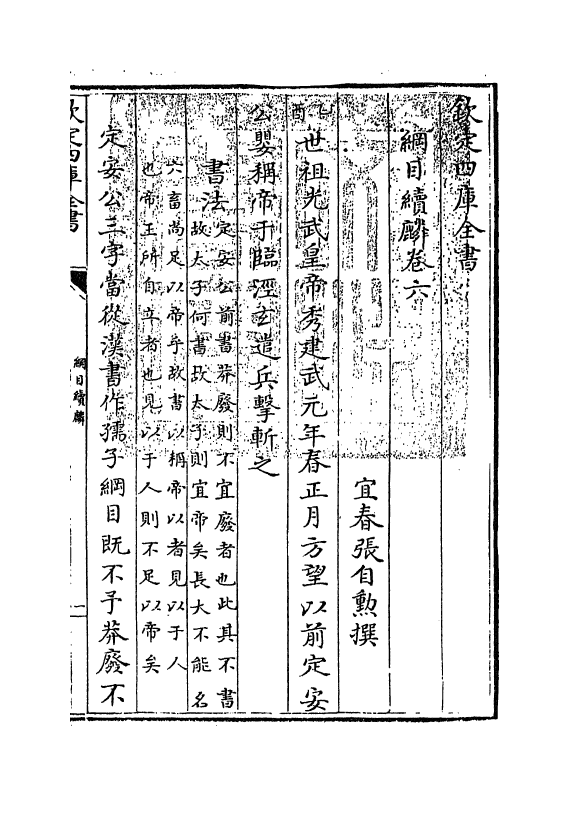 欽定四庫全書
綱目續麟卷六
宜春張自勲撰
乙酉
世祖光武皇帝秀建武元年春正月方望以前定安
公嬰稱帝于臨涇玄遣兵擊斬之
書法定安公前書莽廢則不宜廢者也此其不書
故太子何書故太子則宜帝矣長大不能名
六畜尚足以帝乎故書以稱帝以者見以于人
也帝王所自立者也見以于人則不足以帝矣
定安公三字當從漢書作孺子綱目既不予莽廢不
欽定四庫全書
綱目續麟
一